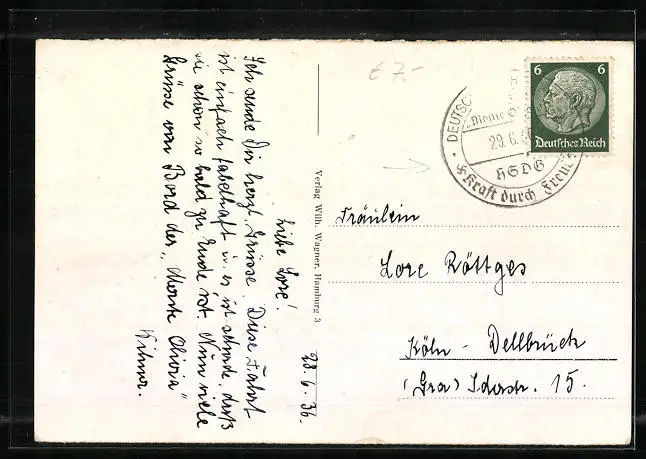 28.6.36.
Liebe Lore!
Ich sende Dir herzl. Grüsse. Diese Fahrt
ist einfach fabelhaft u. es ist schade, daß
sie schon so bald zu Ende ist. Nun viele
Grüsse von Bord der „Monte Olivia"
€ 7,-
DEUTSCH
29.6.
HSDG
Kraft durch Freu
6 6
Deutsches Reich
Verlag Wilh. Wagner, Hamburg 3
Fräulein
Lore Röttges
Köln - Dellbrück
Idastr. 15.